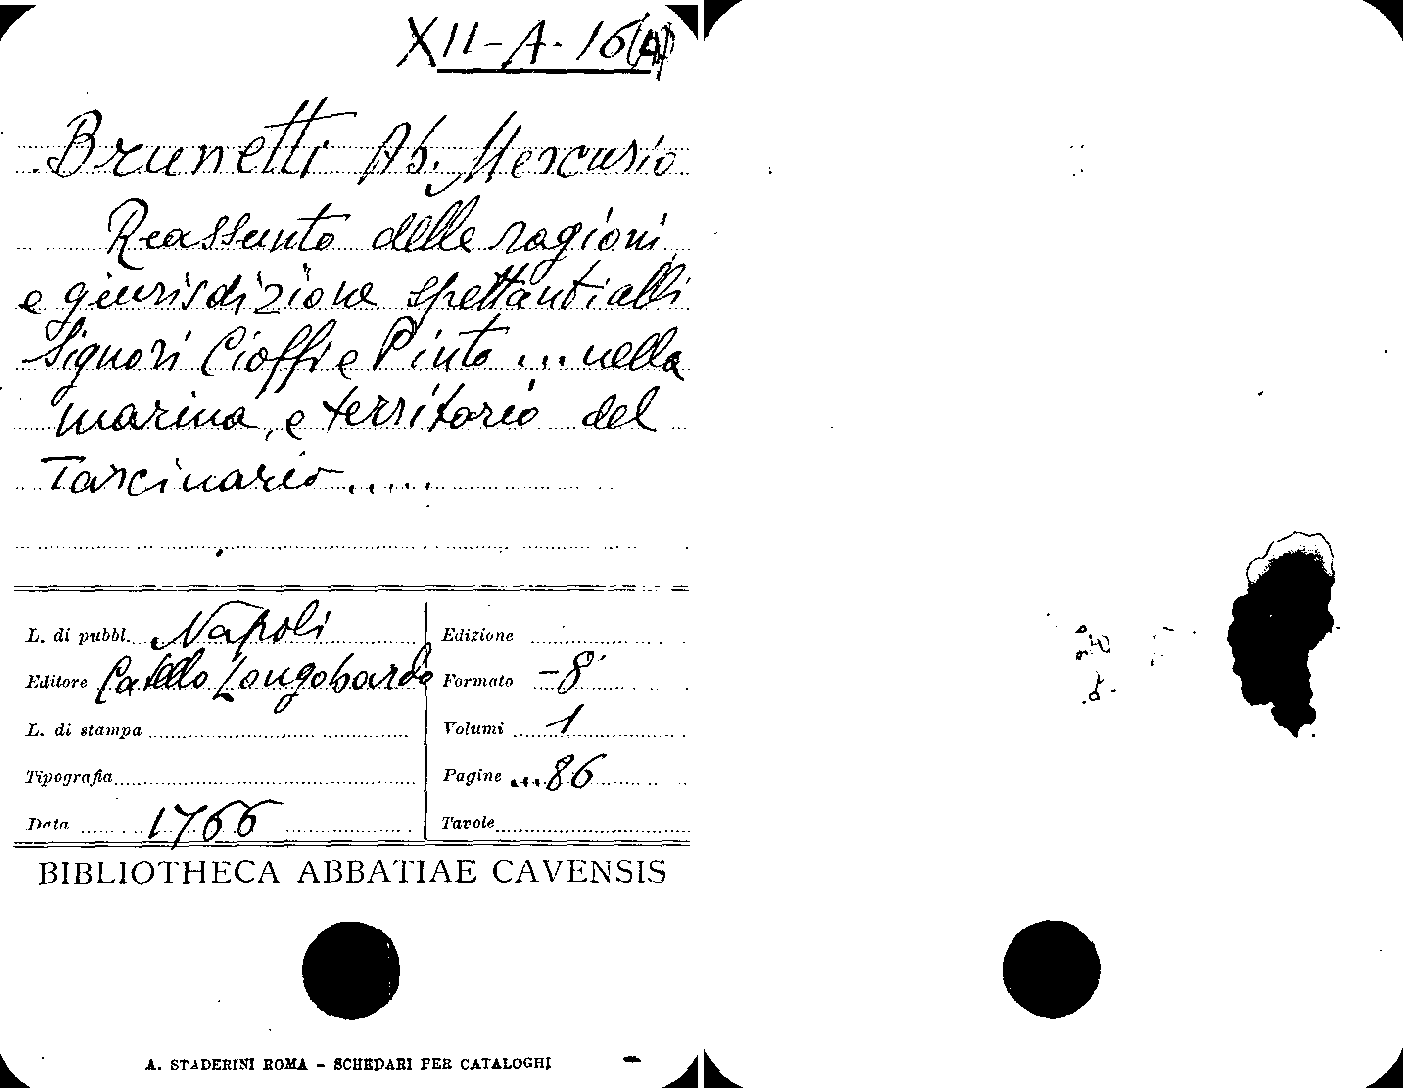 XII-A-16(A)
Brunetti Ab. Mercurio
Reassunto delle ragioni,
e giurisdizione spettanti alli
Signori Cioffi e Pinto ... nella
marina, e territorio del
Tarcinario.....
L. di pubbl. Napoli
Edizione
Editore Catello Longobardo
Formato -8°
L. di stampa
Volumi 1
Tipografia
Pagine ...86
Data 1766
Tavole
BIBLIOTHECA ABBATIAE CAVENSIS
A. STADERINI ROMA - SCHEDARI PER CATALOGHI